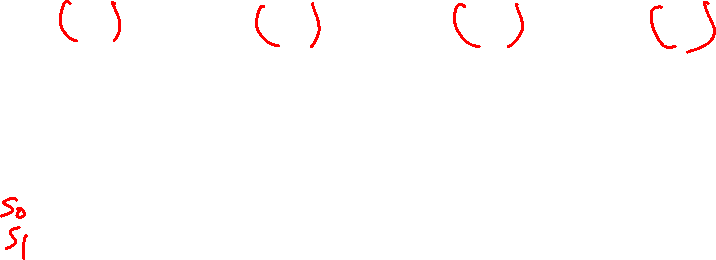 ( ) ( ) ( ) ( )
S0
S1